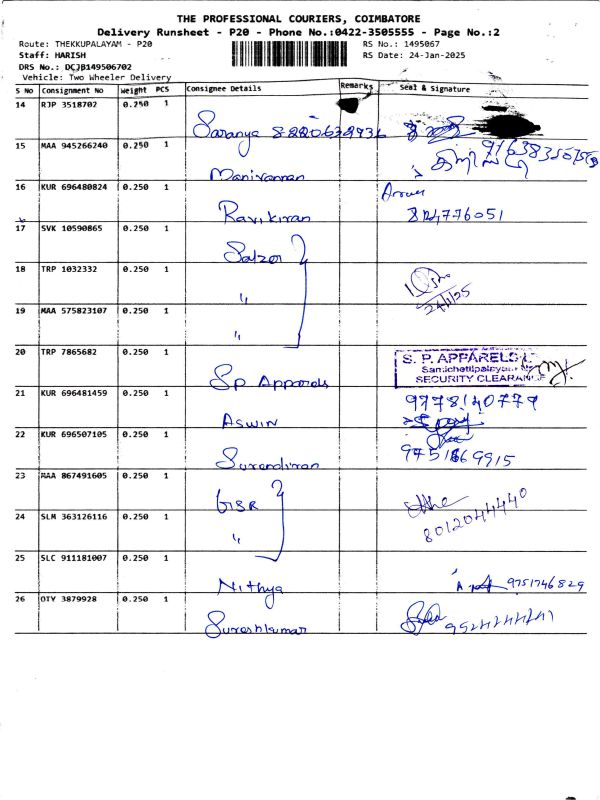 THE PROFESSIONAL COURIERS, COIMBATORE
Delivery Runsheet - P20 - Phone No.:0422-3505555 - Page No.:2
Route: THEKKUPALAYAM - P20 RS No.: 1495067
Staff: HARISH RS Date: 24-Jan-2025
DRS No.: DCJB149506702
Vehicle: Two Wheeler Delivery
S No Consignment No Weight PCS Consignee Details Remarks Seal & Signature
14 RJP 3518702 0.250 1
Saranya
15 MAA 945266240 0.250 1
Manivannan
16 KUR 696480824 0.250 1
Ravikiran
17 SVK 10590865 0.250 1
Salzer
18 TRP 1032332 0.250 1
" 24/1/25
19 MAA 575823107 0.250 1
"
20 TRP 7865682 0.250 1
Sp Apparels S. P. APPARELS
SECURITY CLEARANCE
21 KUR 696481459 0.250 1
Aswin 9778140779
22 KUR 696507105 0.250 1
Surendiran
23 MAA 867491605 0.250 1
GSR
24 SLM 363126116 0.250 1
" 8012044440
25 SLC 911181007 0.250 1
Nithya 9751746829
26 OTY 3879928 0.250 1
Sureshkumar